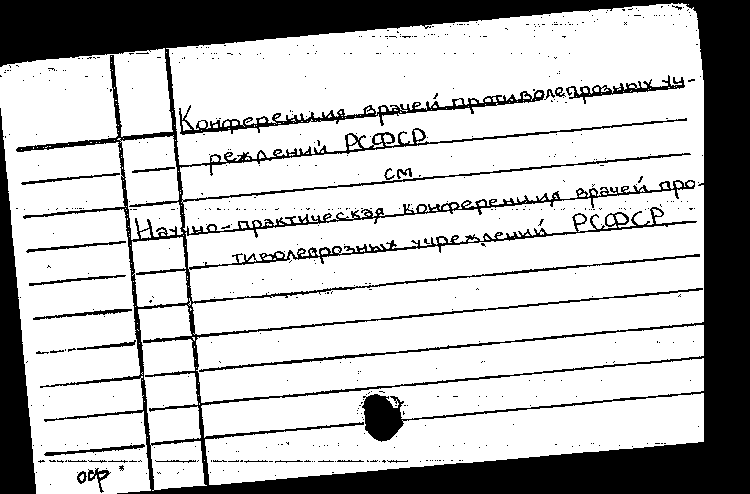 Конференция врачей противолепрозных уч-
реждений РСФСР
см.
Научно-практическая конференция врачей про-
тиволепрозных учреждений РСФСР
оср